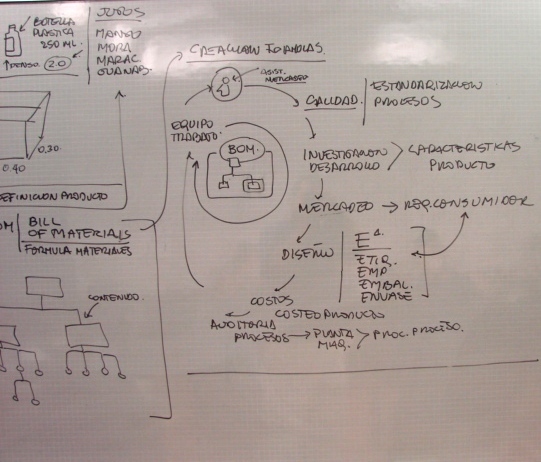 BOTELLA
PLASTICA
250 ML.
2.0
JUGOS
MANGO
MORA
MARAC
GUANAB.
0.30
0.40
DEFINICION PRODUCTO
BILL
OF MATERIALS
FORMULA MATERIALES
CONTENIDO.
ASIST.
MERCADEO
CALIDAD.
ESTANDARIZACION
PROCESOS
EQUIPO
TRABAJO
BOM.
INVESTIGACION
DESARROLLO
CARACTERISTICAS
PRODUCTO
MERCADEO → REQ. CONSUMIDOR
DISEÑO
E4.
ETIQ.
EMP
EMBAL.
ENVASE
COSTOS
COSTEO PRODUCTO
AUDITORIA
PROCESOS → PLANTA
MAQ.
PROC. PROCESO.